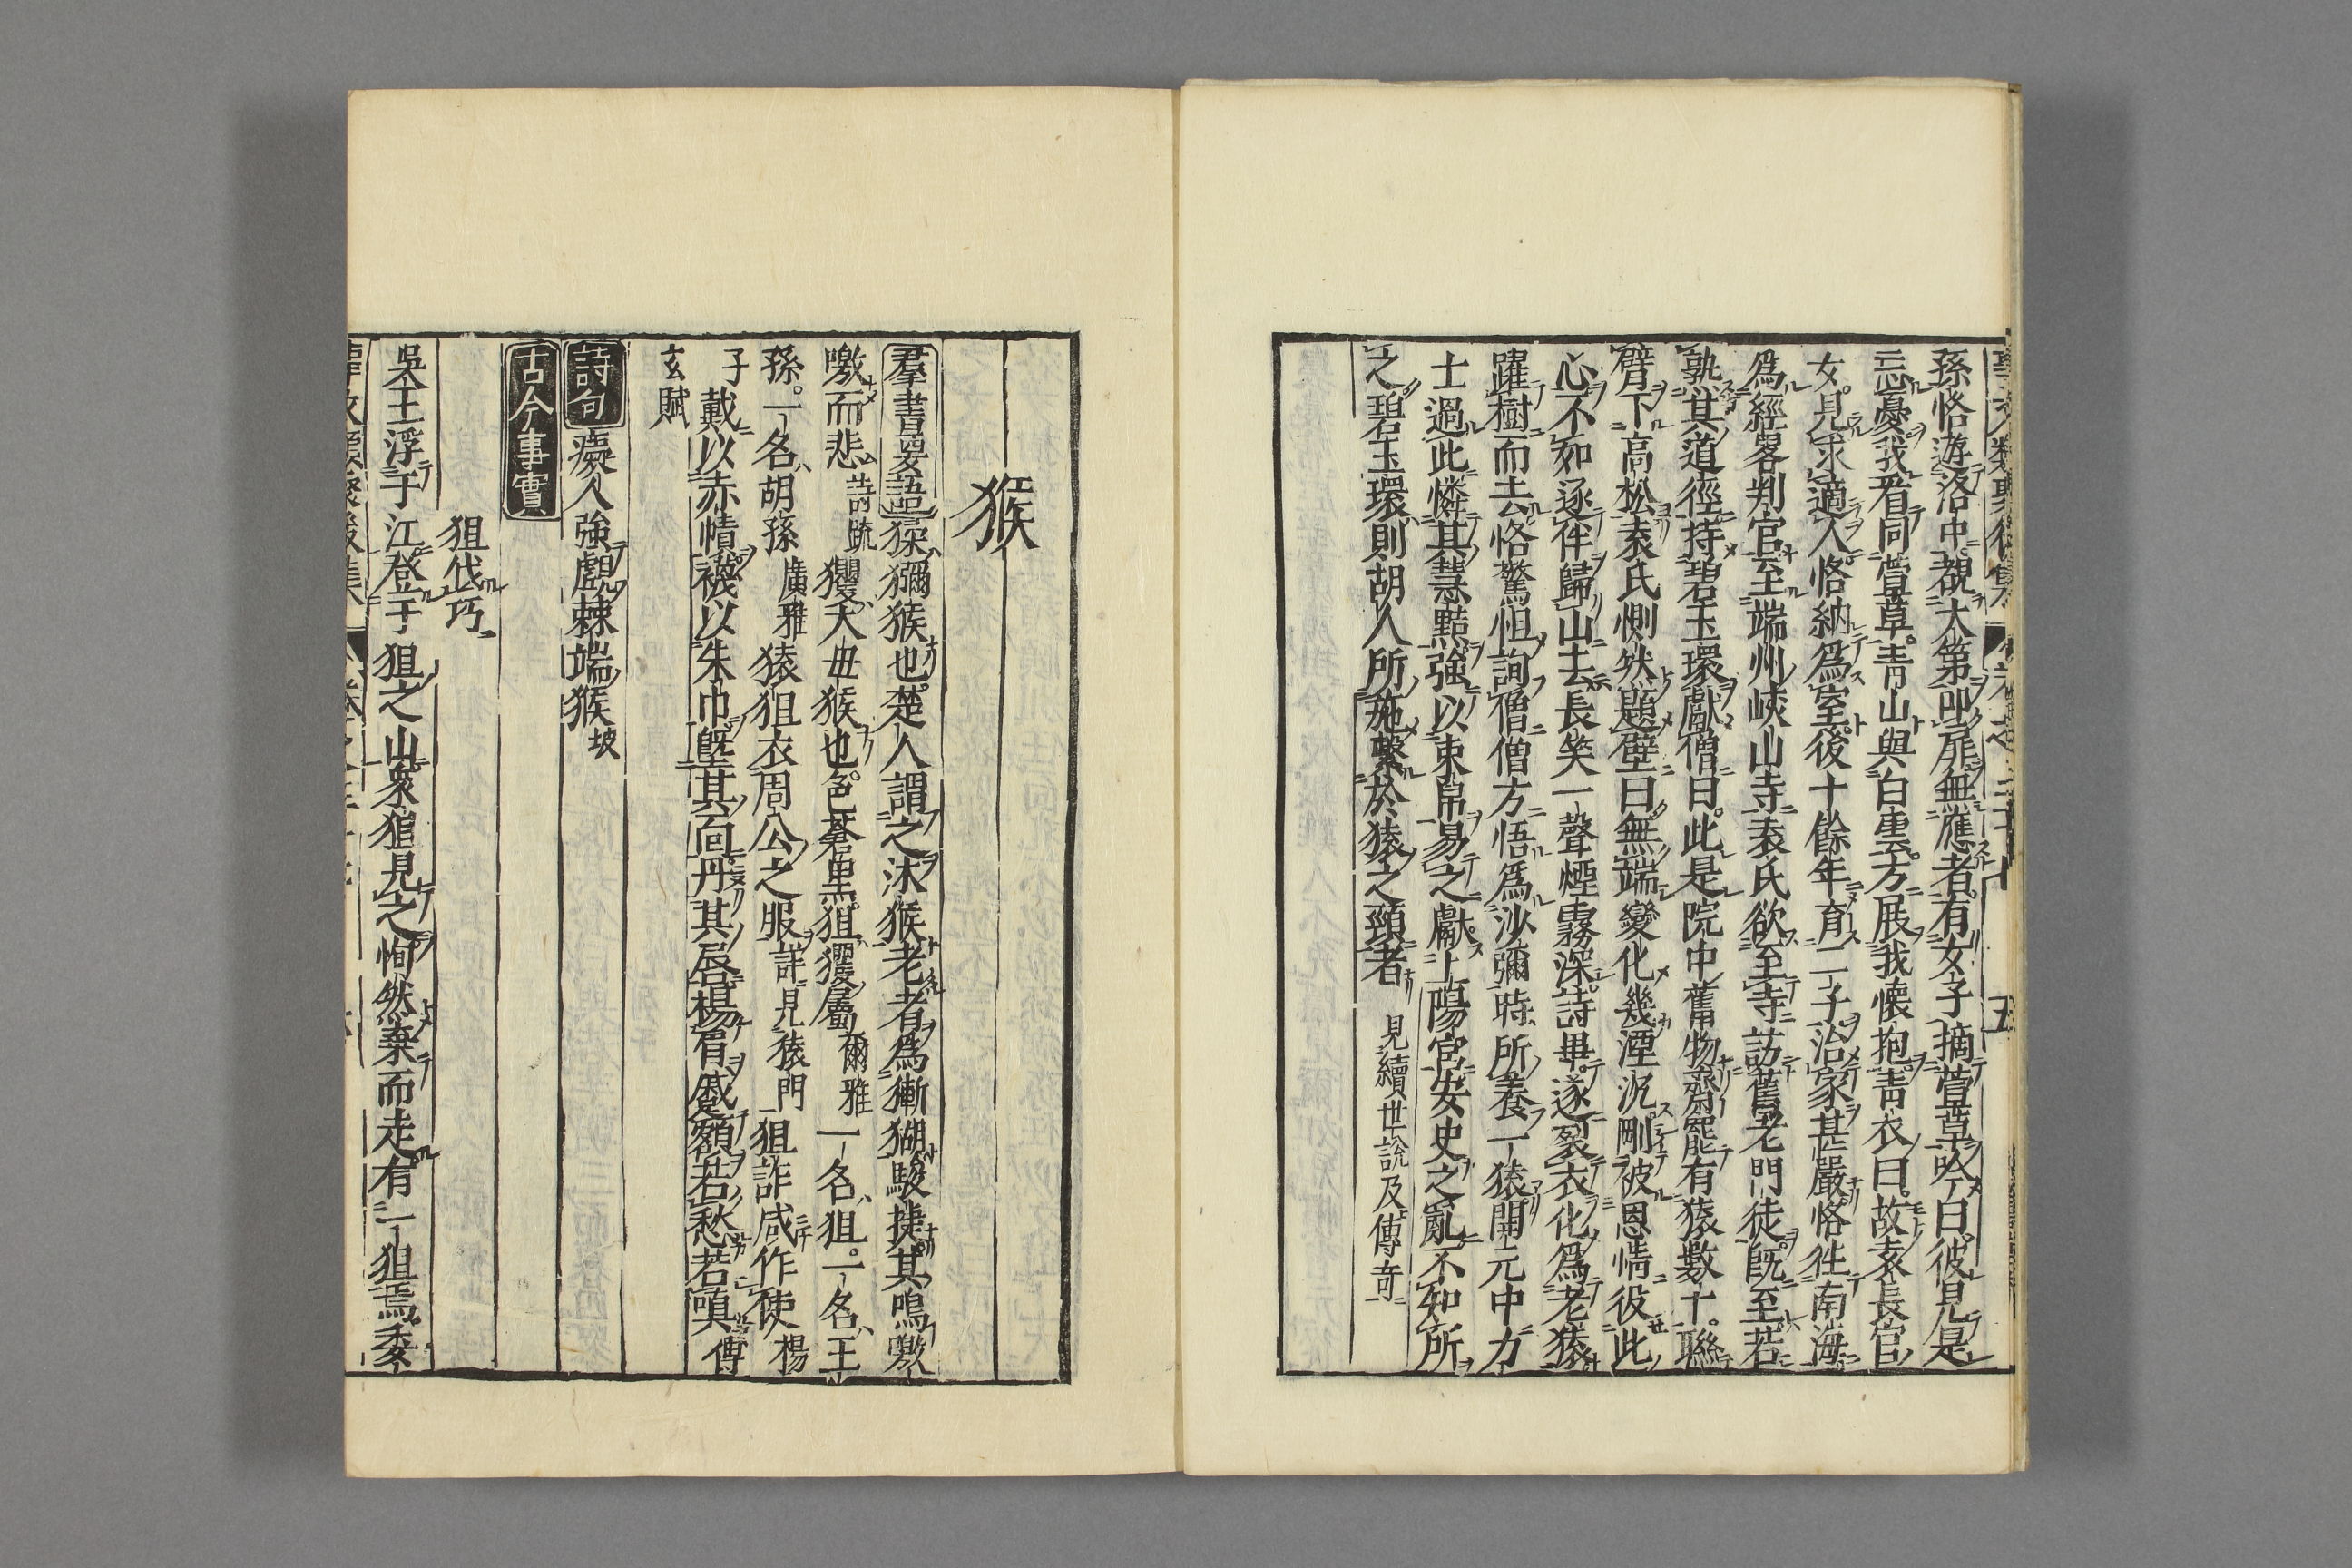 孫恪遊洛中覩大第叩扉無應者有女子摘萱草吟曰彼見是
忘憂我看同萱草青山與白雲方展我懷抱青衣曰故袁長官
女見求適人恪納爲室後十餘年育二子治家甚嚴恪徃南海
爲經畧判官至端州峽山寺袁氏欲至寺訪舊老門徒旣至若
孰其道徑持碧玉環獻僧曰此是院中舊物齋罷有猿數十聯
臂下高松袁氏惻然題壁曰無端變化幾湮沉剛被恩情役此
心不如逐伴歸山去長笑一聲煙霧深詩畢遂裂衣化爲老猿
躍樹而去恪驚怛詢僧僧方悟爲沙彌時所養一猿開元中力
士過此憐其慧黠強以束帛易之獻上陽宮安史之亂不知所
之碧玉環則胡人所施繫於猿之頸者 見續世說及傳奇
猴
羣書要語 猱獼猴也楚人謂之沐猴老者爲獑猢駿捷其鳴噭
噭而悲 詩疏 玃大母猴也色蒼黒狙玃屬 爾雅 一名狙一名王
孫一名胡孫 廣雅 猿狙衣周公之服 詳見猿門 狙詐咸作使 楊
子 戴以赤幘襪以朱巾塈其面丹其唇楊眉蹙額若愁若嗔 傳
玄賦
詩句 癡人強覷棘端猴 坡
古今事實
狙伐巧
吳王浮于江登于狙之山衆狙見之恂然棄而走有一狙焉委